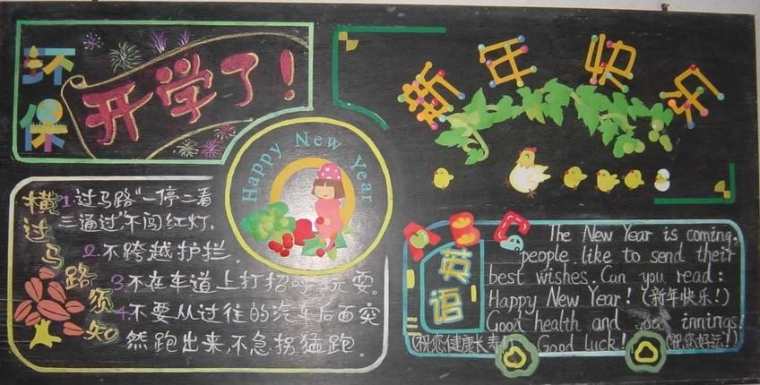 环保
开学了!
新年快乐
Happy New Year
横过马路须知
1.过马路"一停二看
三通过",不闯红灯.
2.不跨越护拦.
3.不在车道上打招呼玩耍。
4.不要从过往的汽车后面突
然跑出来,不急拐猛跑.
英语
The New Year is coming,
people like to send their
best wishes. Can you read:
Happy New Year! (新年快乐!)
Good health and good innings!
(祝您健康长寿!) Good luck! (祝您好运!)